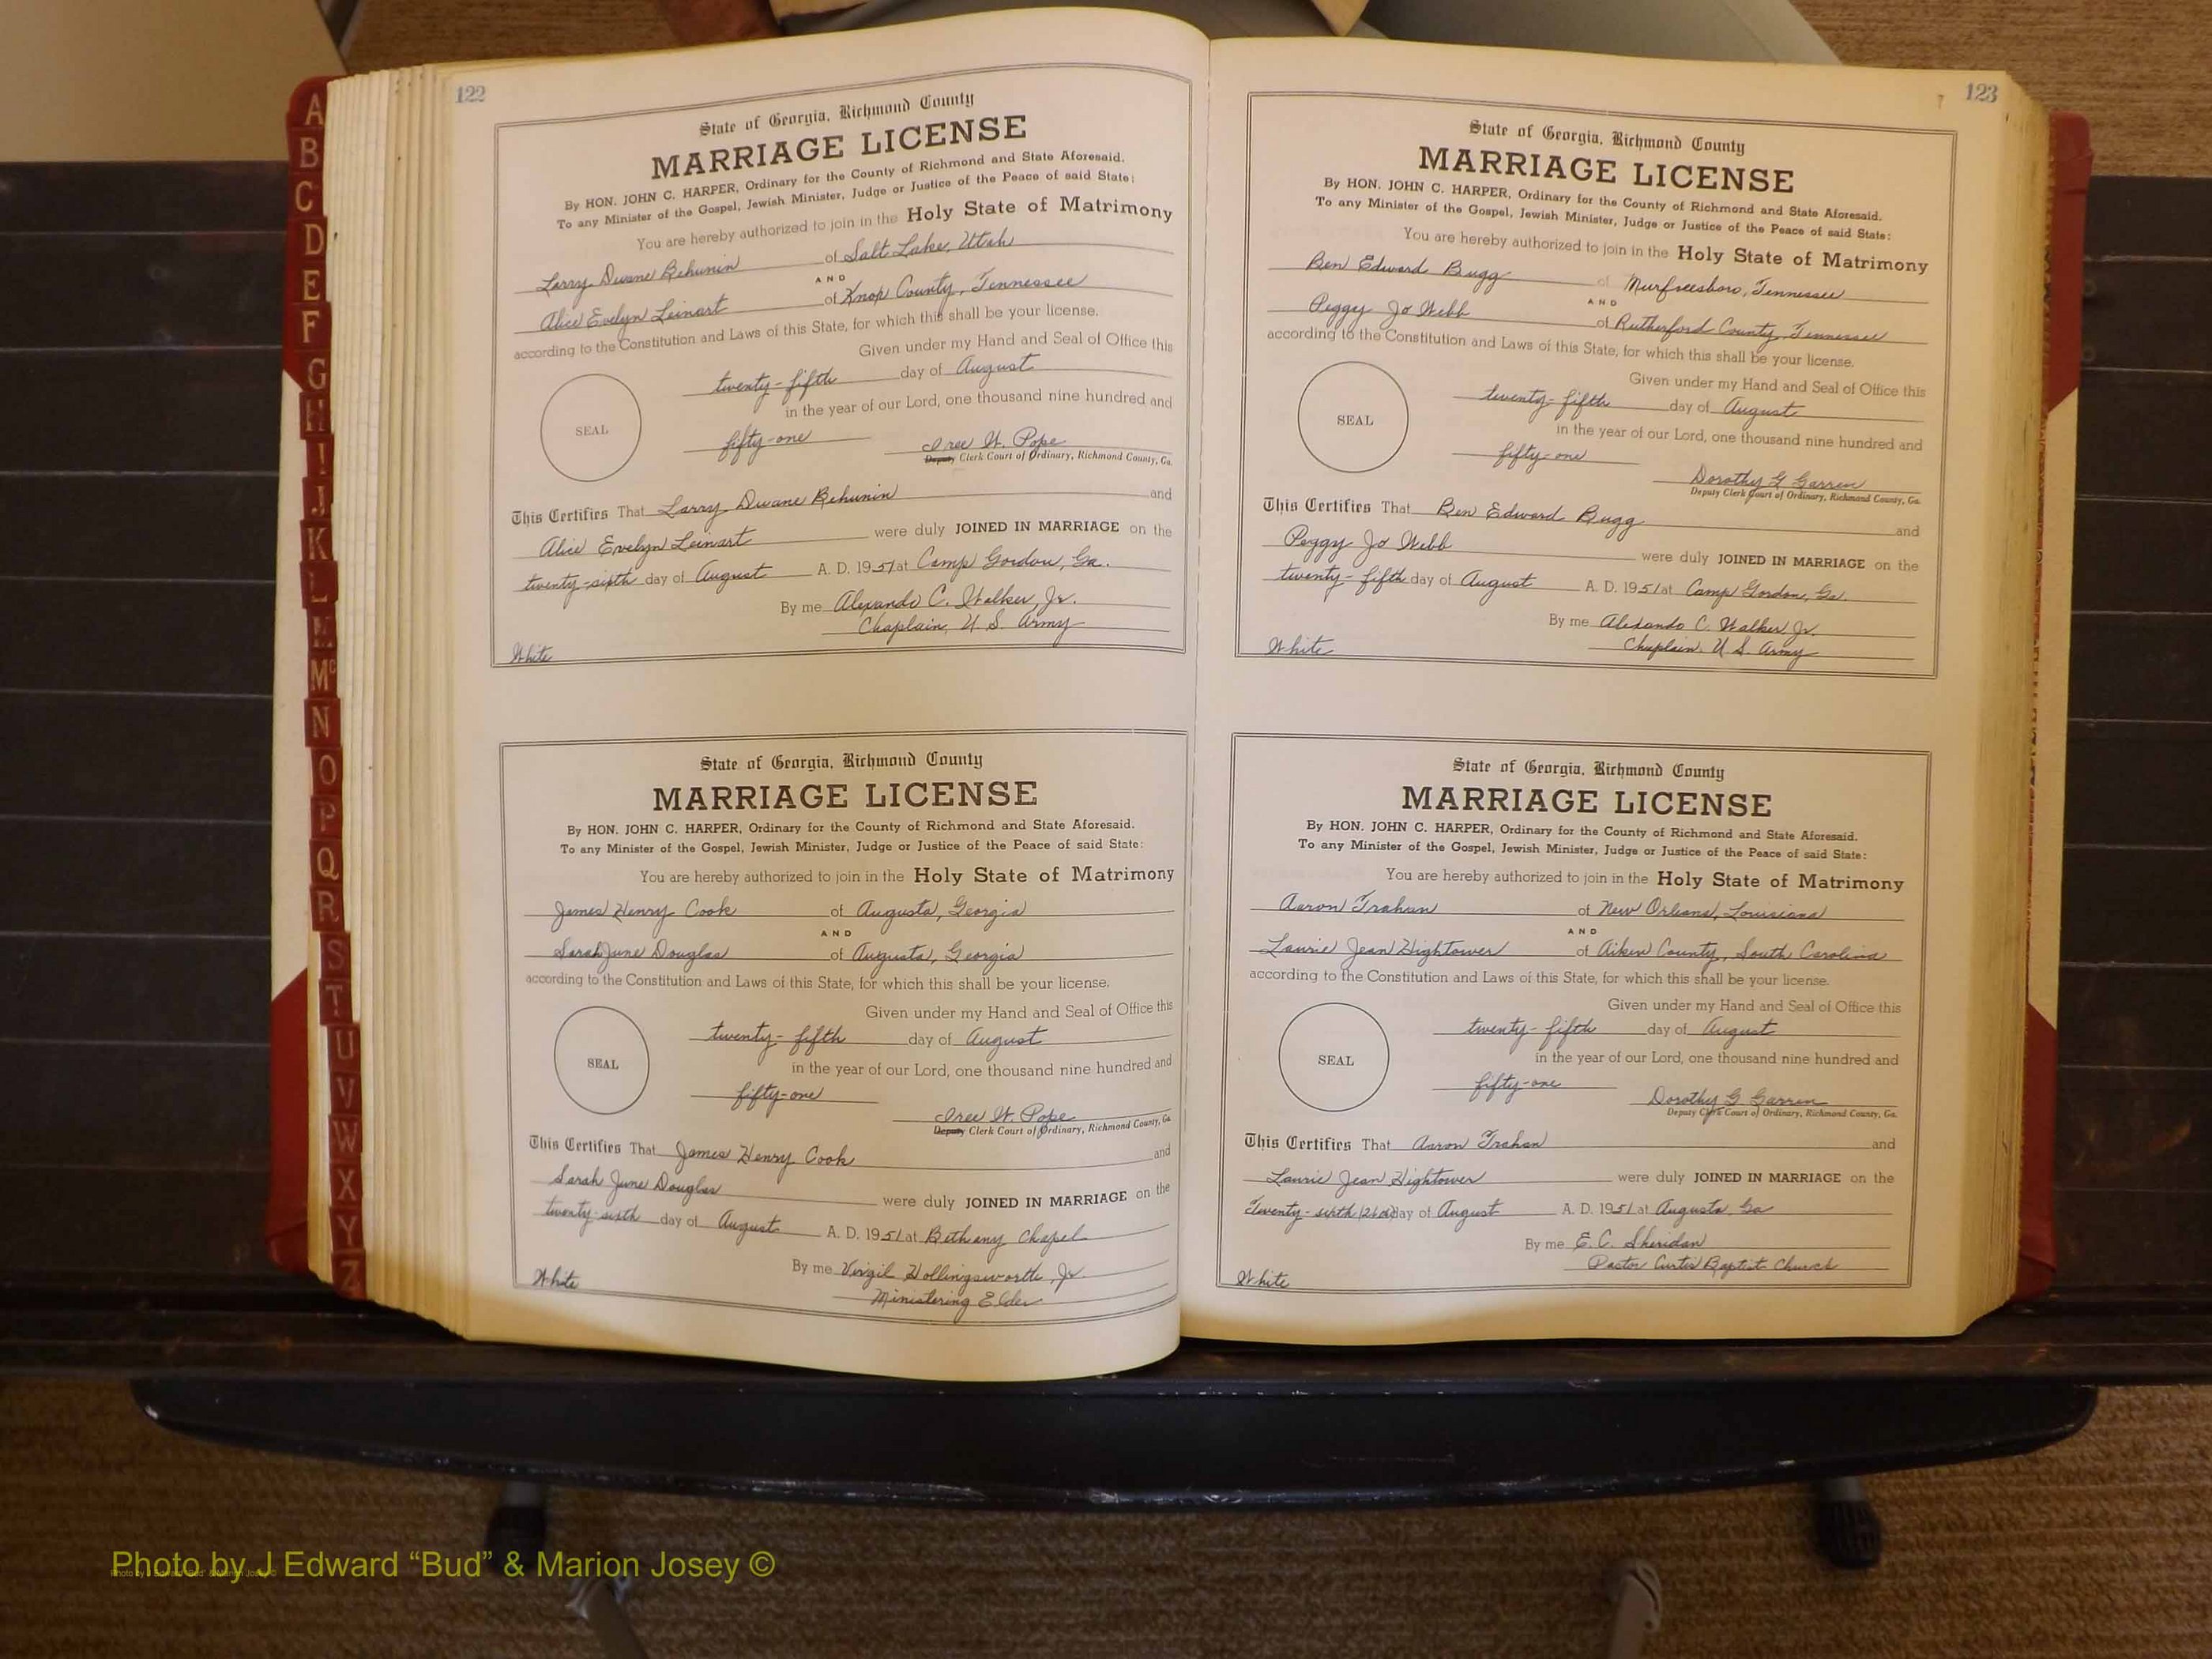 A
B
C
D
E
F
G
H
I
J
K
L
M
Mc
N
O
P
Q
R
S
T
U
V
W
X
Y
Z
122
State of Georgia, Richmond County
MARRIAGE LICENSE
By HON. JOHN C. HARPER, Ordinary for the County of Richmond and State Aforesaid.
To any Minister of the Gospel, Jewish Minister, Judge or Justice of the Peace of said State:
You are hereby authorized to join in the Holy State of Matrimony
Larry Duane Behunin of Salt Lake, Utah
AND
Alice Evelyn Leinart of Knox County, Tennessee
according to the Constitution and Laws of this State, for which this shall be your license.
Given under my Hand and Seal of Office this
twenty-fifth day of August
in the year of our Lord, one thousand nine hundred and
SEAL
fifty-one Iree W. Pope
Deputy Clerk Court of Ordinary, Richmond County, Ga.
This Certifies That Larry Duane Behunin and
Alice Evelyn Leinart were duly JOINED IN MARRIAGE on the
twenty-sixth day of August A. D. 1951 at Camp Gordon, Ga.
By me Alexando C. Walker, Jr.
Chaplain, U S. Army
White
State of Georgia, Richmond County
MARRIAGE LICENSE
By HON. JOHN C. HARPER, Ordinary for the County of Richmond and State Aforesaid.
To any Minister of the Gospel, Jewish Minister, Judge or Justice of the Peace of said State:
You are hereby authorized to join in the Holy State of Matrimony
James Henry Cook of Augusta, Georgia
AND
Sarah June Douglas of Augusta, Georgia
according to the Constitution and Laws of this State, for which this shall be your license.
Given under my Hand and Seal of Office this
twenty-fifth day of August
SEAL
in the year of our Lord, one thousand nine hundred and
fifty-one Iree W. Pope
Deputy Clerk Court of Ordinary, Richmond County, Ga.
This Certifies That James Henry Cook and
Sarah June Douglas were duly JOINED IN MARRIAGE on the
twenty-sixth day of August A. D. 1951 at Bethany Chapel
By me Virgil Hollingsworth, Jr.
Ministering Elder
White
123
State of Georgia, Richmond County
MARRIAGE LICENSE
By HON. JOHN C. HARPER, Ordinary for the County of Richmond and State Aforesaid.
To any Minister of the Gospel, Jewish Minister, Judge or Justice of the Peace of said State:
You are hereby authorized to join in the Holy State of Matrimony
Ben Edward Bugg of Murfreesboro, Tennessee
AND
Peggy Jo Webb of Rutherford County, Tennessee
according to the Constitution and Laws of this State, for which this shall be your license.
Given under my Hand and Seal of Office this
twenty-fifth day of August
SEAL
in the year of our Lord, one thousand nine hundred and
fifty-one Dorothy G Garren
Deputy Clerk Court of Ordinary, Richmond County, Ga.
This Certifies That Ben Edward Bugg and
Peggy Jo Webb were duly JOINED IN MARRIAGE on the
twenty-fifth day of August A. D. 1951 at Camp Gordon, Ga.
By me Alexando C. Walker, Jr.
Chaplain, U. S. Army
White
State of Georgia, Richmond County
MARRIAGE LICENSE
By HON. JOHN C. HARPER, Ordinary for the County of Richmond and State Aforesaid.
To any Minister of the Gospel, Jewish Minister, Judge or Justice of the Peace of said State:
You are hereby authorized to join in the Holy State of Matrimony
Aaron Trahan of New Orleans, Louisiana
AND
Laurie Jean Hightower of Aiken County, South Carolina
according to the Constitution and Laws of this State, for which this shall be your license.
Given under my Hand and Seal of Office this
twenty-fifth day of August
SEAL
in the year of our Lord, one thousand nine hundred and
fifty-one Dorothy G Garren
Deputy Clerk Court of Ordinary, Richmond County, Ga.
This Certifies That Aaron Trahan and
Laurie Jean Hightower were duly JOINED IN MARRIAGE on the
Twenty-sixth day of August A. D. 1951 at Augusta, Ga
By me E. C. Sheridan
Pastor Curtis Baptist Church
White
Photo by J Edward “Bud” & Marion Josey ©
Photo by J Edward “Bud” & Marion Josey ©